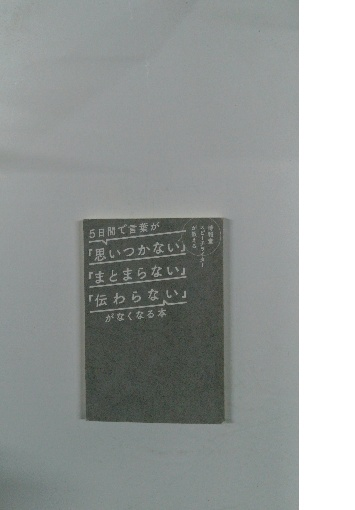 5日間で言葉が
「思いつかない」
「まとまらない」
「伝わらない」
がなくなる本
スピーチライター
が教える